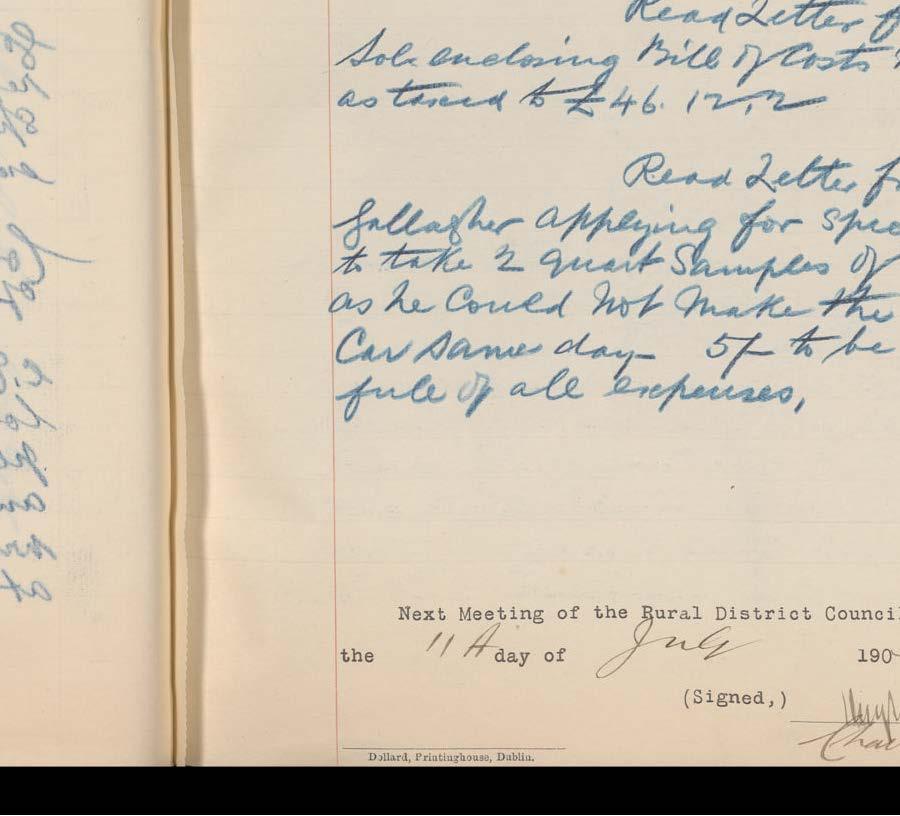 Read Letter f
Sol. enclosing Bill of Costs
as taxed to £46.12.2
Read Letter fr
Gallagher applying for spec
to take 2 quart Samples of
as he Could Not Make the
Car same day 5/- to be
full of all expenses,
Next Meeting of the Rural District Council
the 11th day of July 190
(Signed,)
Chai
Dollard, Printinghouse, Dublin.